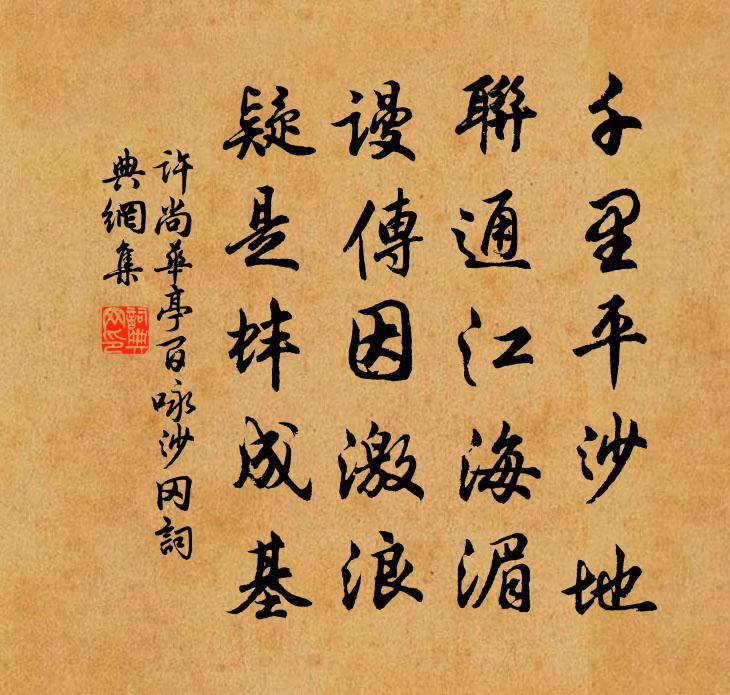 千里平沙地
聯通江海湄
謾傳因激浪
疑是蚌成基
許尚華亭百咏沙冈詞
典網集
詞典
网印